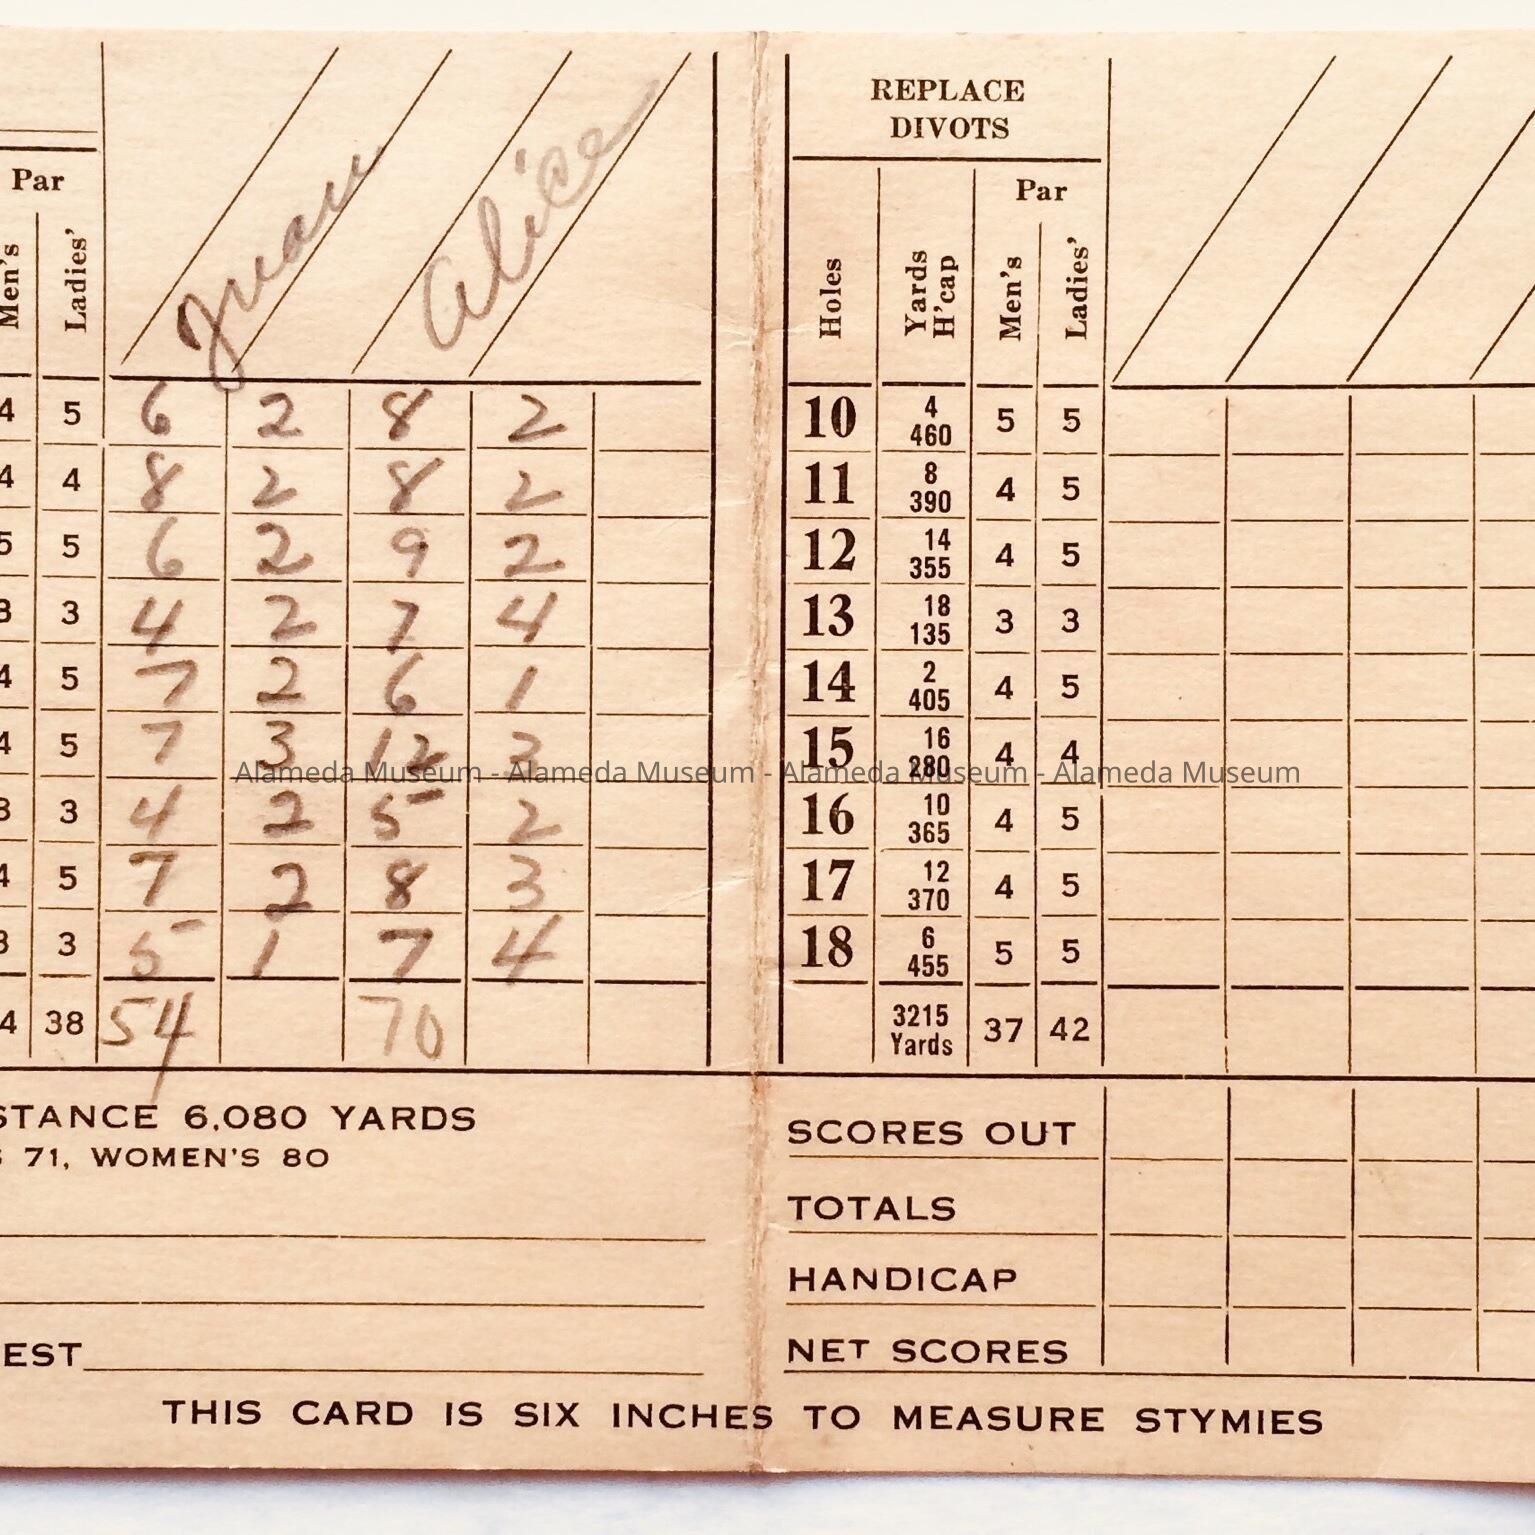 REPLACE
DIVOTS
Par
Men's Ladies'
Juan
Alice
Holes Yards H'cap Par Men's Ladies'
4 5 6 2 8 2
4 4 8 2 8 2
5 5 6 2 9 2
3 3 4 2 7 4
4 5 7 2 6 1
4 5 7 3 12 3
3 3 4 2 5 2
4 5 7 2 8 3
3 3 5 1 7 4
4 38 54 70
10 4 460 5 5
11 8 390 4 5
12 14 355 4 5
13 18 135 3 3
14 2 405 4 5
15 16 280 4 4
16 10 365 4 5
17 12 370 4 5
18 6 455 5 5
3215 Yards 37 42
Alameda Museum - Alameda Museum - Alameda Museum - Alameda Museum
STANCE 6,080 YARDS
S 71, WOMEN'S 80
EST
SCORES OUT
TOTALS
HANDICAP
NET SCORES
THIS CARD IS SIX INCHES TO MEASURE STYMIES